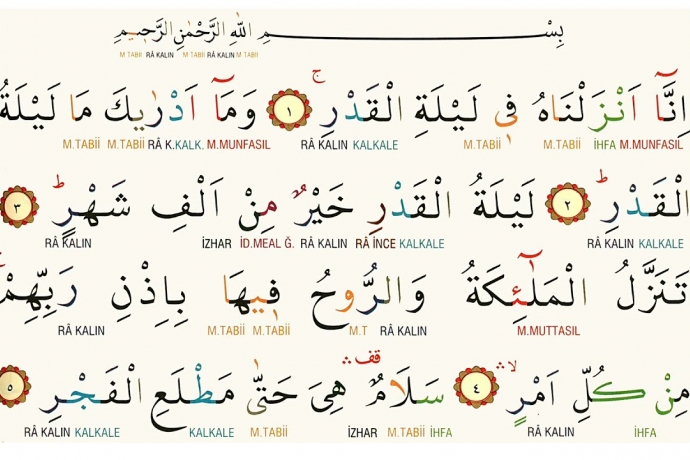 بِسْمِ اللّٰهِ الرَّحْمٰنِ الرَّحٖيمِ
M TABİİ RÂ KALIN M TABİİ RÂ KALIN M TABİİ
اِنَّٓا اَنْزَلْنَاهُ فٖي لَيْلَةِ الْقَدْرِ ۚ ﴿١﴾ وَمَٓا اَدْرٰيكَ مَا لَيْلَةُ
M.TABİİ M.TABİİ RÂ K.KALK. M.MUNFASIL RÂ KALIN KALKALE M.TABİİ M.TABİİ İHFA M.MUNFASIL
الْقَدْرِ ؕ ﴿٢﴾ لَيْلَةُ الْقَدْرِ خَيْرٌ مِنْ اَلْفِ شَهْرٍ ؕ ﴿٣﴾
RÂ KALIN İZHAR İD.MEAL Ğ. RÂ KALIN RÂ İNCE KALKALE RÂ KALIN KALKALE
تَنَزَّلُ الْمَلٰٓئِكَةُ وَالرُّوحُ فٖيهَا بِاِذْنِ رَبِّهِمْ
RÂ KALIN M.TABİİ M.TABİİ M.T RÂ KALIN M.MUTTASIL
مِنْ كُلِّ اَمْرٍ ۙ ﴿٤﴾ سَلَامٌ هِيَ حَتّٰى مَطْلَعِ الْفَجْرِ ﴿٥﴾
RÂ KALIN KALKALE KALKALE M.TABİİ İZHAR M.TABİİ İHFA RÂ KALIN İHFA